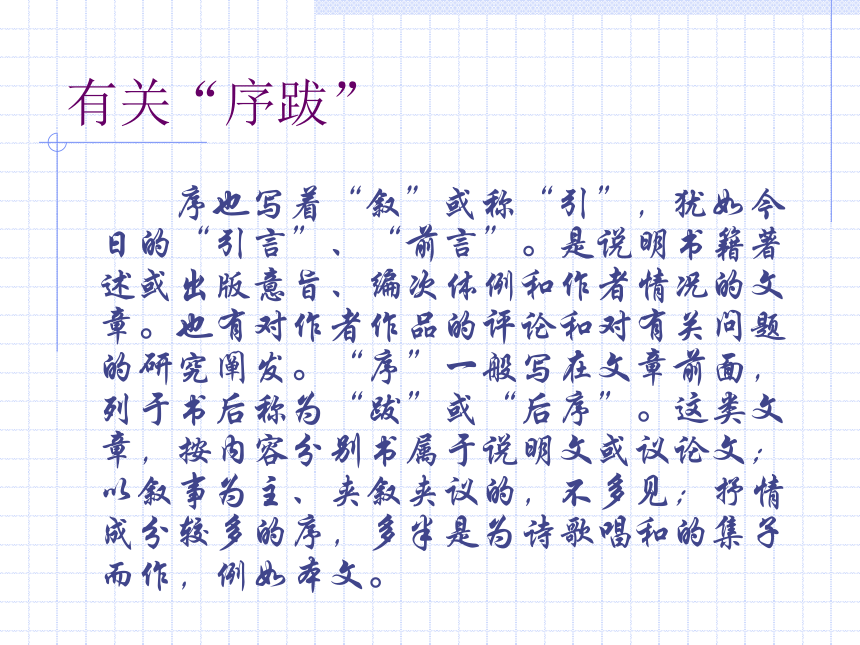 有关“序跋”
序也写着“叙”或称“引”，犹如今
日的“引言”、“前言”。是说明书籍著
述或出版意旨、编次体例和作者情况的文
章。也有对作者作品的评论和对有关问题
的研究阐发。“序”一般写在文章前面，
列于书后称为“跋”或“后序”。这类文
章，按内容分别书属于说明文或议论文；
以叙事为主、夹叙夹议的，不多见；抒情
成分较多的序，多半是为诗歌唱和的集子
而作，例如本文。